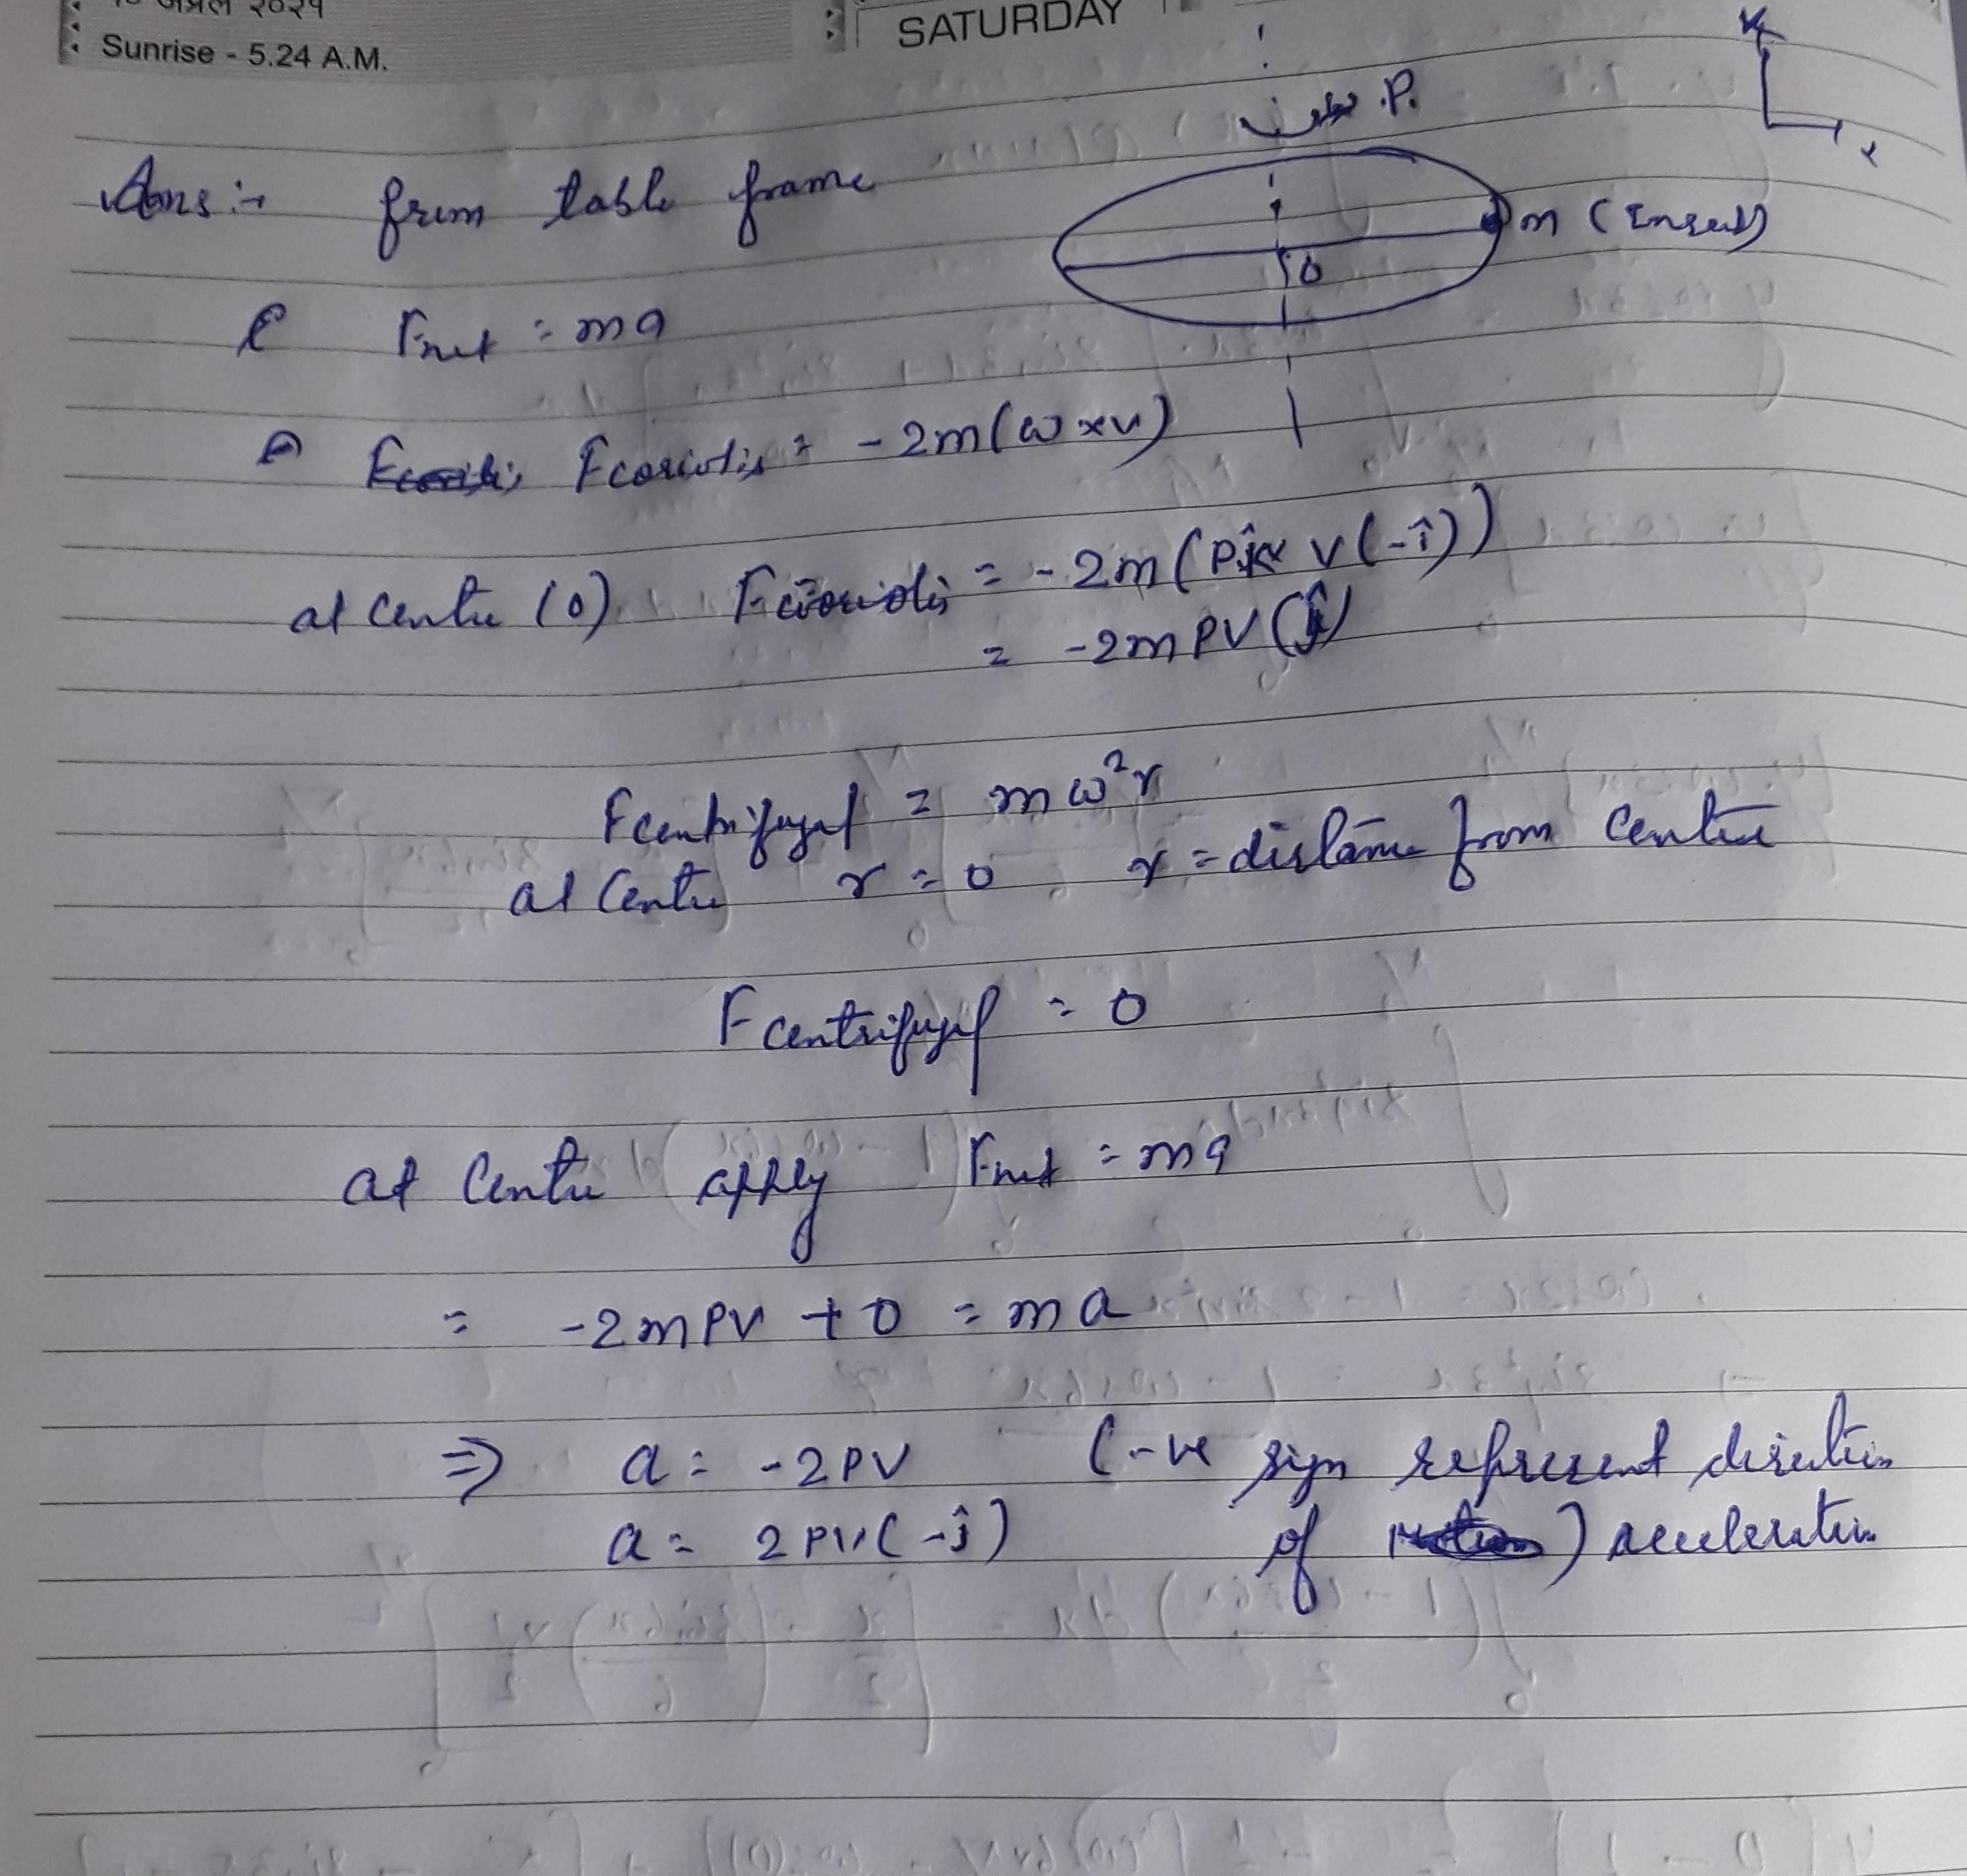 अप्रैल २०२१
Sunrise - 5.24 A.M.
SATURDAY
ω = P.
m (Insect)
O
Ans :- from table frame
Fnet = ma
Fcoriolis = -2m(ω×v)
at Centre (O) Fcoriolis = -2m(Pk̂ × v(-î))
= -2mPV(ĵ)
Fcentrifugal = mω²r
at Centre r = 0 r = distance from Centre
Fcentrifugal = 0
at Centre apply Fnet = ma
= -2mPV + 0 = ma
⇒ a = -2PV (-ve sign represent direction
a = 2PV(-ĵ) of ) acceleration